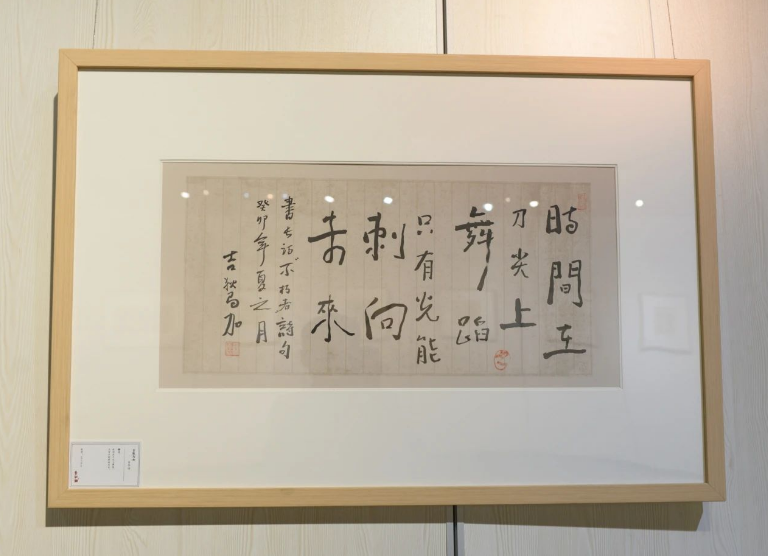 時間在
刀尖上
舞蹈
只有光能
刺向
未來
書長詩不朽者詩句
癸卯年夏之月
吉狄馬加